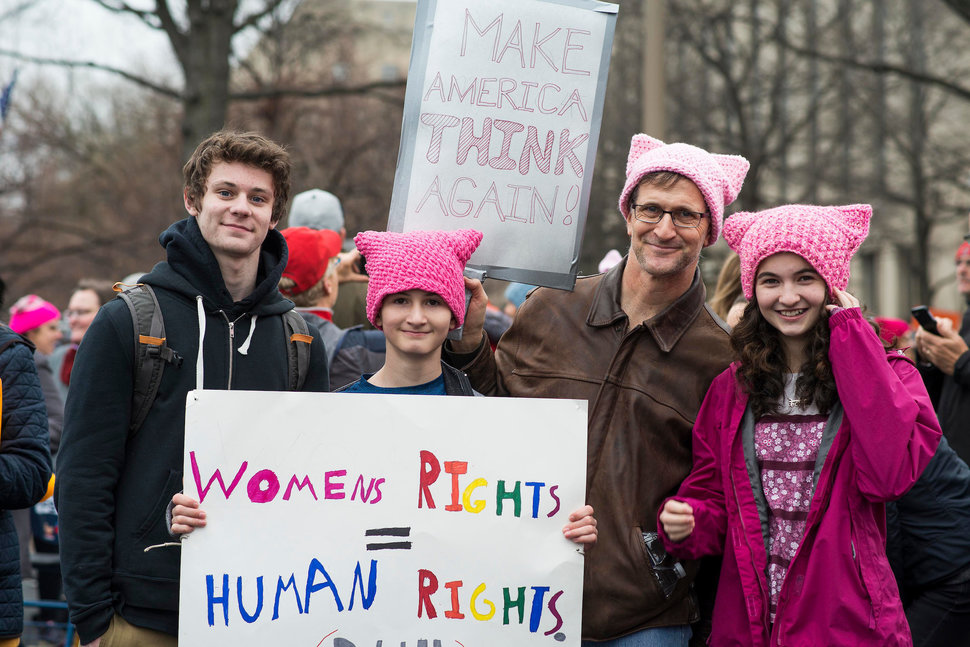 MAKE
AMERICA
THINK
AGAIN!
WOMENS RIGHTS
=
HUMAN RIGHTS.